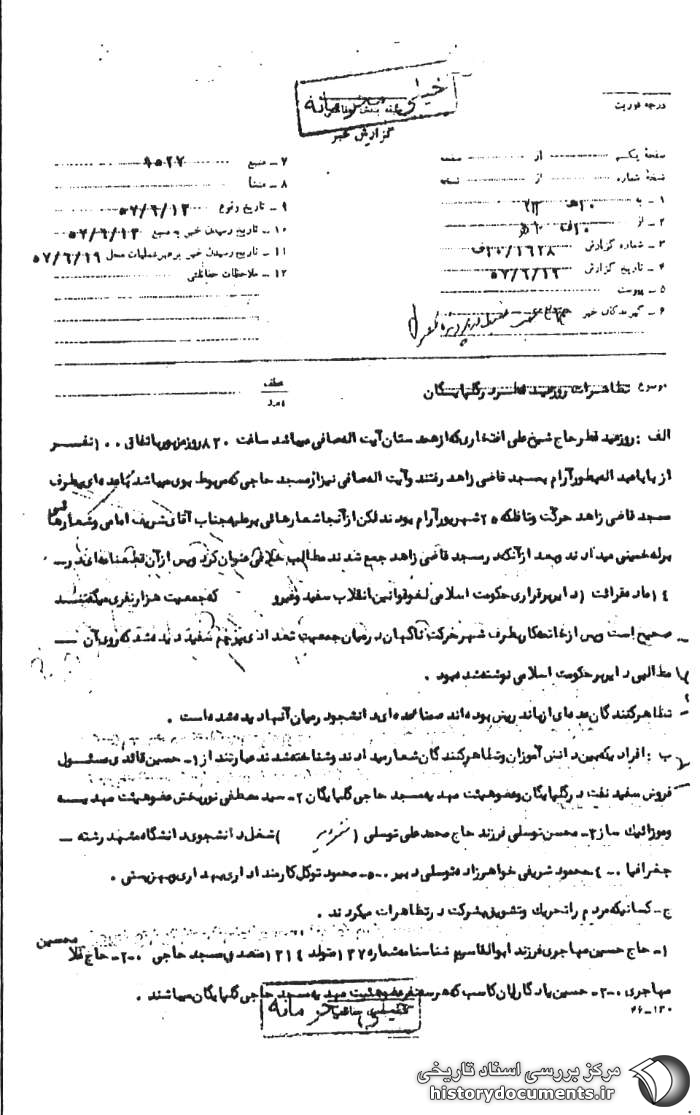 خیلی محرمانه
گزارش خبر
درجه فوریت
صفحه یکم از صفحه
نسخه شماره از نسخه
۱ - به
۲ - از
۳ - شماره گزارش ۱۶۲۸/
۴ - تاریخ گزارش ۵۷/۶/۱۹
۵ - پیوست
۶ - گیرندگان خبر
۷ - منبع ۹۵۲۷
۸ - منشأ
۹ - تاریخ وقوع ۵۷/۶/۱۳
۱۰ - تاریخ رسیدن خبر به منبع ۵۷/۶/۱۳
۱۱ - تاریخ رسیدن خبر به رهبر عملیات محل ۵۷/۶/۱۹
۱۲ - ملاحظات حفاظتی
موضوع تظاهرات روز عید فطر در گلپایگان
عطف
الف : روز عید فطر حاج شیخ علی افتخاری که از همدستان آیت اله صافی میباشد ساعت ۸۳۰ روز مزبور باتفاق ۱۰۰ نفر
از باباعبداله بطور آرام بمسجد قاضی زاهد رفتند و آیت اله صافی نیز از مسجد حاجی که مربوط بوی میباشد با عده ای بطرف
مسجد قاضی زاهد حرکت شهر بور آرام بودند لکن از آنجا شعارهائی برعلیه جناب آقای شریف امامی و شعارهائی
برله خمینی میدادند و بعد از آنکه در مسجد قاضی زاهد جمع شدند مطالب خلافی عنوان کرد و پس از آن قطعنامه ای در
۱۴ ماده قرائت دایر برقراری حکومت اسلامی لغو قوانین انقلاب سفید وغیره که جمعیت هزار نفری میگفتند
صحیح است و پس از خاتمه کار بطرف شهر حرکت ناگهان در میان جمعیت تعدادی پرچم سفید دیده شد که روی آن
مطالبی دایر بر حکومت اسلامی نوشته شده بود .
تظاهر کنندگان عده ای از باند ربض بوده اند ضمنا عده ای دانشجو در میان آنها دیده شده است .
ب : افرادیکه بین دانش آموزان و تظاهر کنندگان شعار میدادند و شناخته شدند عبارتند از ۱- حسین قائدی مسئول
فروش سفید نفت در گلپایگان و عضو هیئت مهدیه مسجد حاجی گلپایگان ۲- سید مصطفی نوربخش عضو هیئت مهدیه
و موزائیک ساز ۳- محسن توسلی فرزند حاج محمد علی توسلی ( ) شغل دانشجوی دانشگاه مشهد رشته
جغرافیا ۰ ۴- محمود شریفی خواهرزاده توسلی دبیر ۰ ۵- محمود توکل کارمند اداری بهداری بهزیستی .
ج- کسانیکه مردم را تحریک و تشویق بشرکت در تظاهرات میکردند .
۱- حاج حسین مهاجری فرزند ابوالقاسم شناسنامه شماره ۱۳۷ متولد ۱۳۱۴ متصدی مسجد حاجی ۰ ۲- حاج غلامحسین
مهاجری ۰ ۳- حسین یادگاریان کاسب که هر سه نفر عضو هیئت مهدیه مسجد حاجی گلپایگان میباشند .
۴۶-۱۳۰
خیلی محرمانه
مرکز بررسی اسناد تاریخی
historydocuments.ir